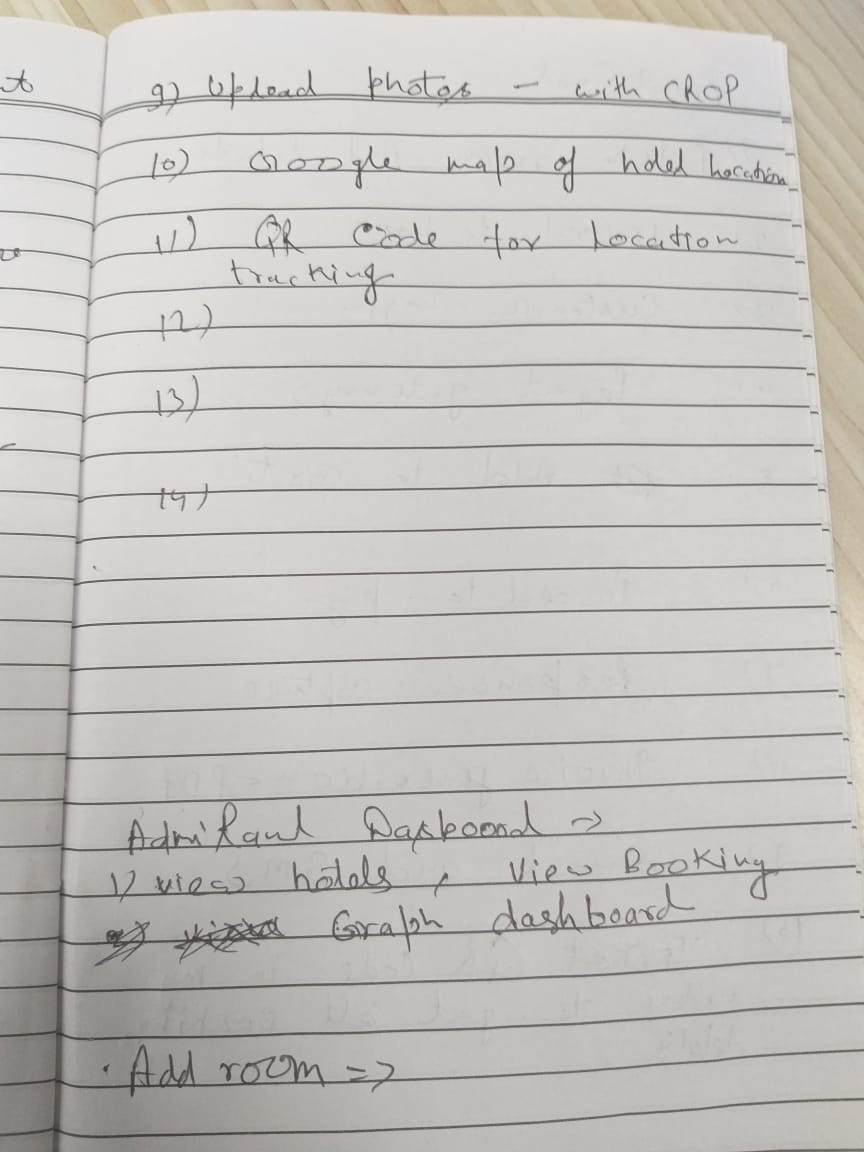 9) Upload photos - with CROP
10) Google map of hotel Location
11) QR Code for Location
tracking
12)
13)
14)
Admi Panl Dasboord →
1) view hotels, View Booking
Graph dashboard
· Add room =>